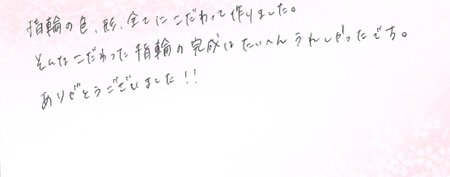 指輪の色、形、全てにこだわって作りました。
そんなこだわった指輪の完成はたいへんうれしかったです。
ありがとうございました!!